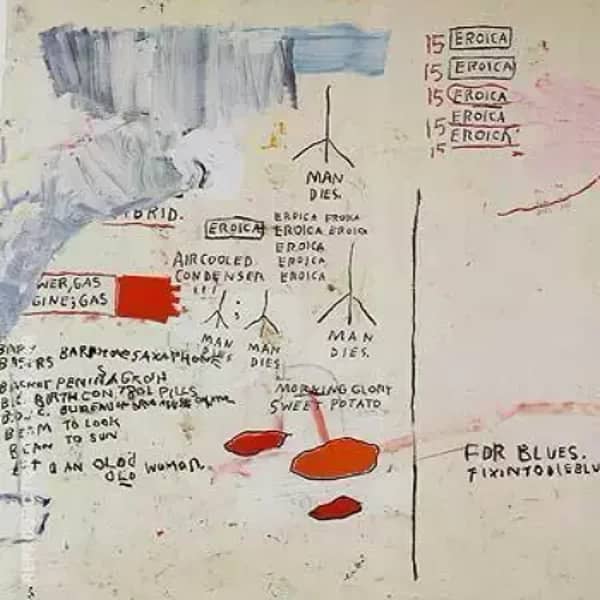 15 EROICA
15 EROICA
15 EROICA
15 EROICA
15 EROICA
MAN
DIES.
BRID.
EROICA
EROICA EROICA
EROICA EROICA
EROICA
EROICA
EROICA
AIRCOOLED
CONDENSER
WER, GAS
GINE; GAS
MAN
DIES
MAN
DIES
MAN
DIES.
BARITONE SAXAPHONE
B.C. BIRTH CONTROL PILLS
BEAM TO LOOK
BEAN TO SUN
AN OLD WOMAN.
OLD
MORNING GLORY
SWEET POTATO
FOR BLUES.
FIXINTODIEBLU